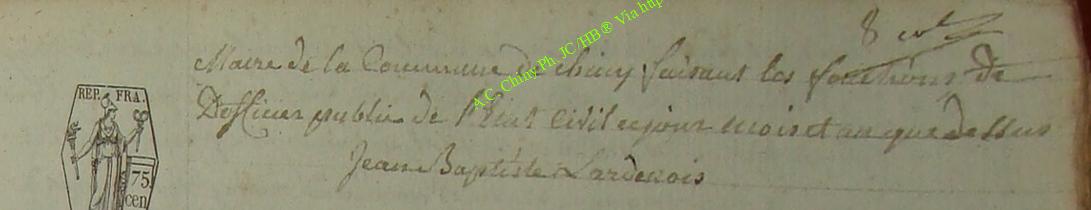 8 
Maire de la Commune de Chiny faisant les fonctions de
D'officier public de l'Etat Civil ce jour mois et an que dessus
Jean Baptiste Lardenois
REP. FRA.
75.
cen
A.C. Chiny Ph. JC/HB® Via http